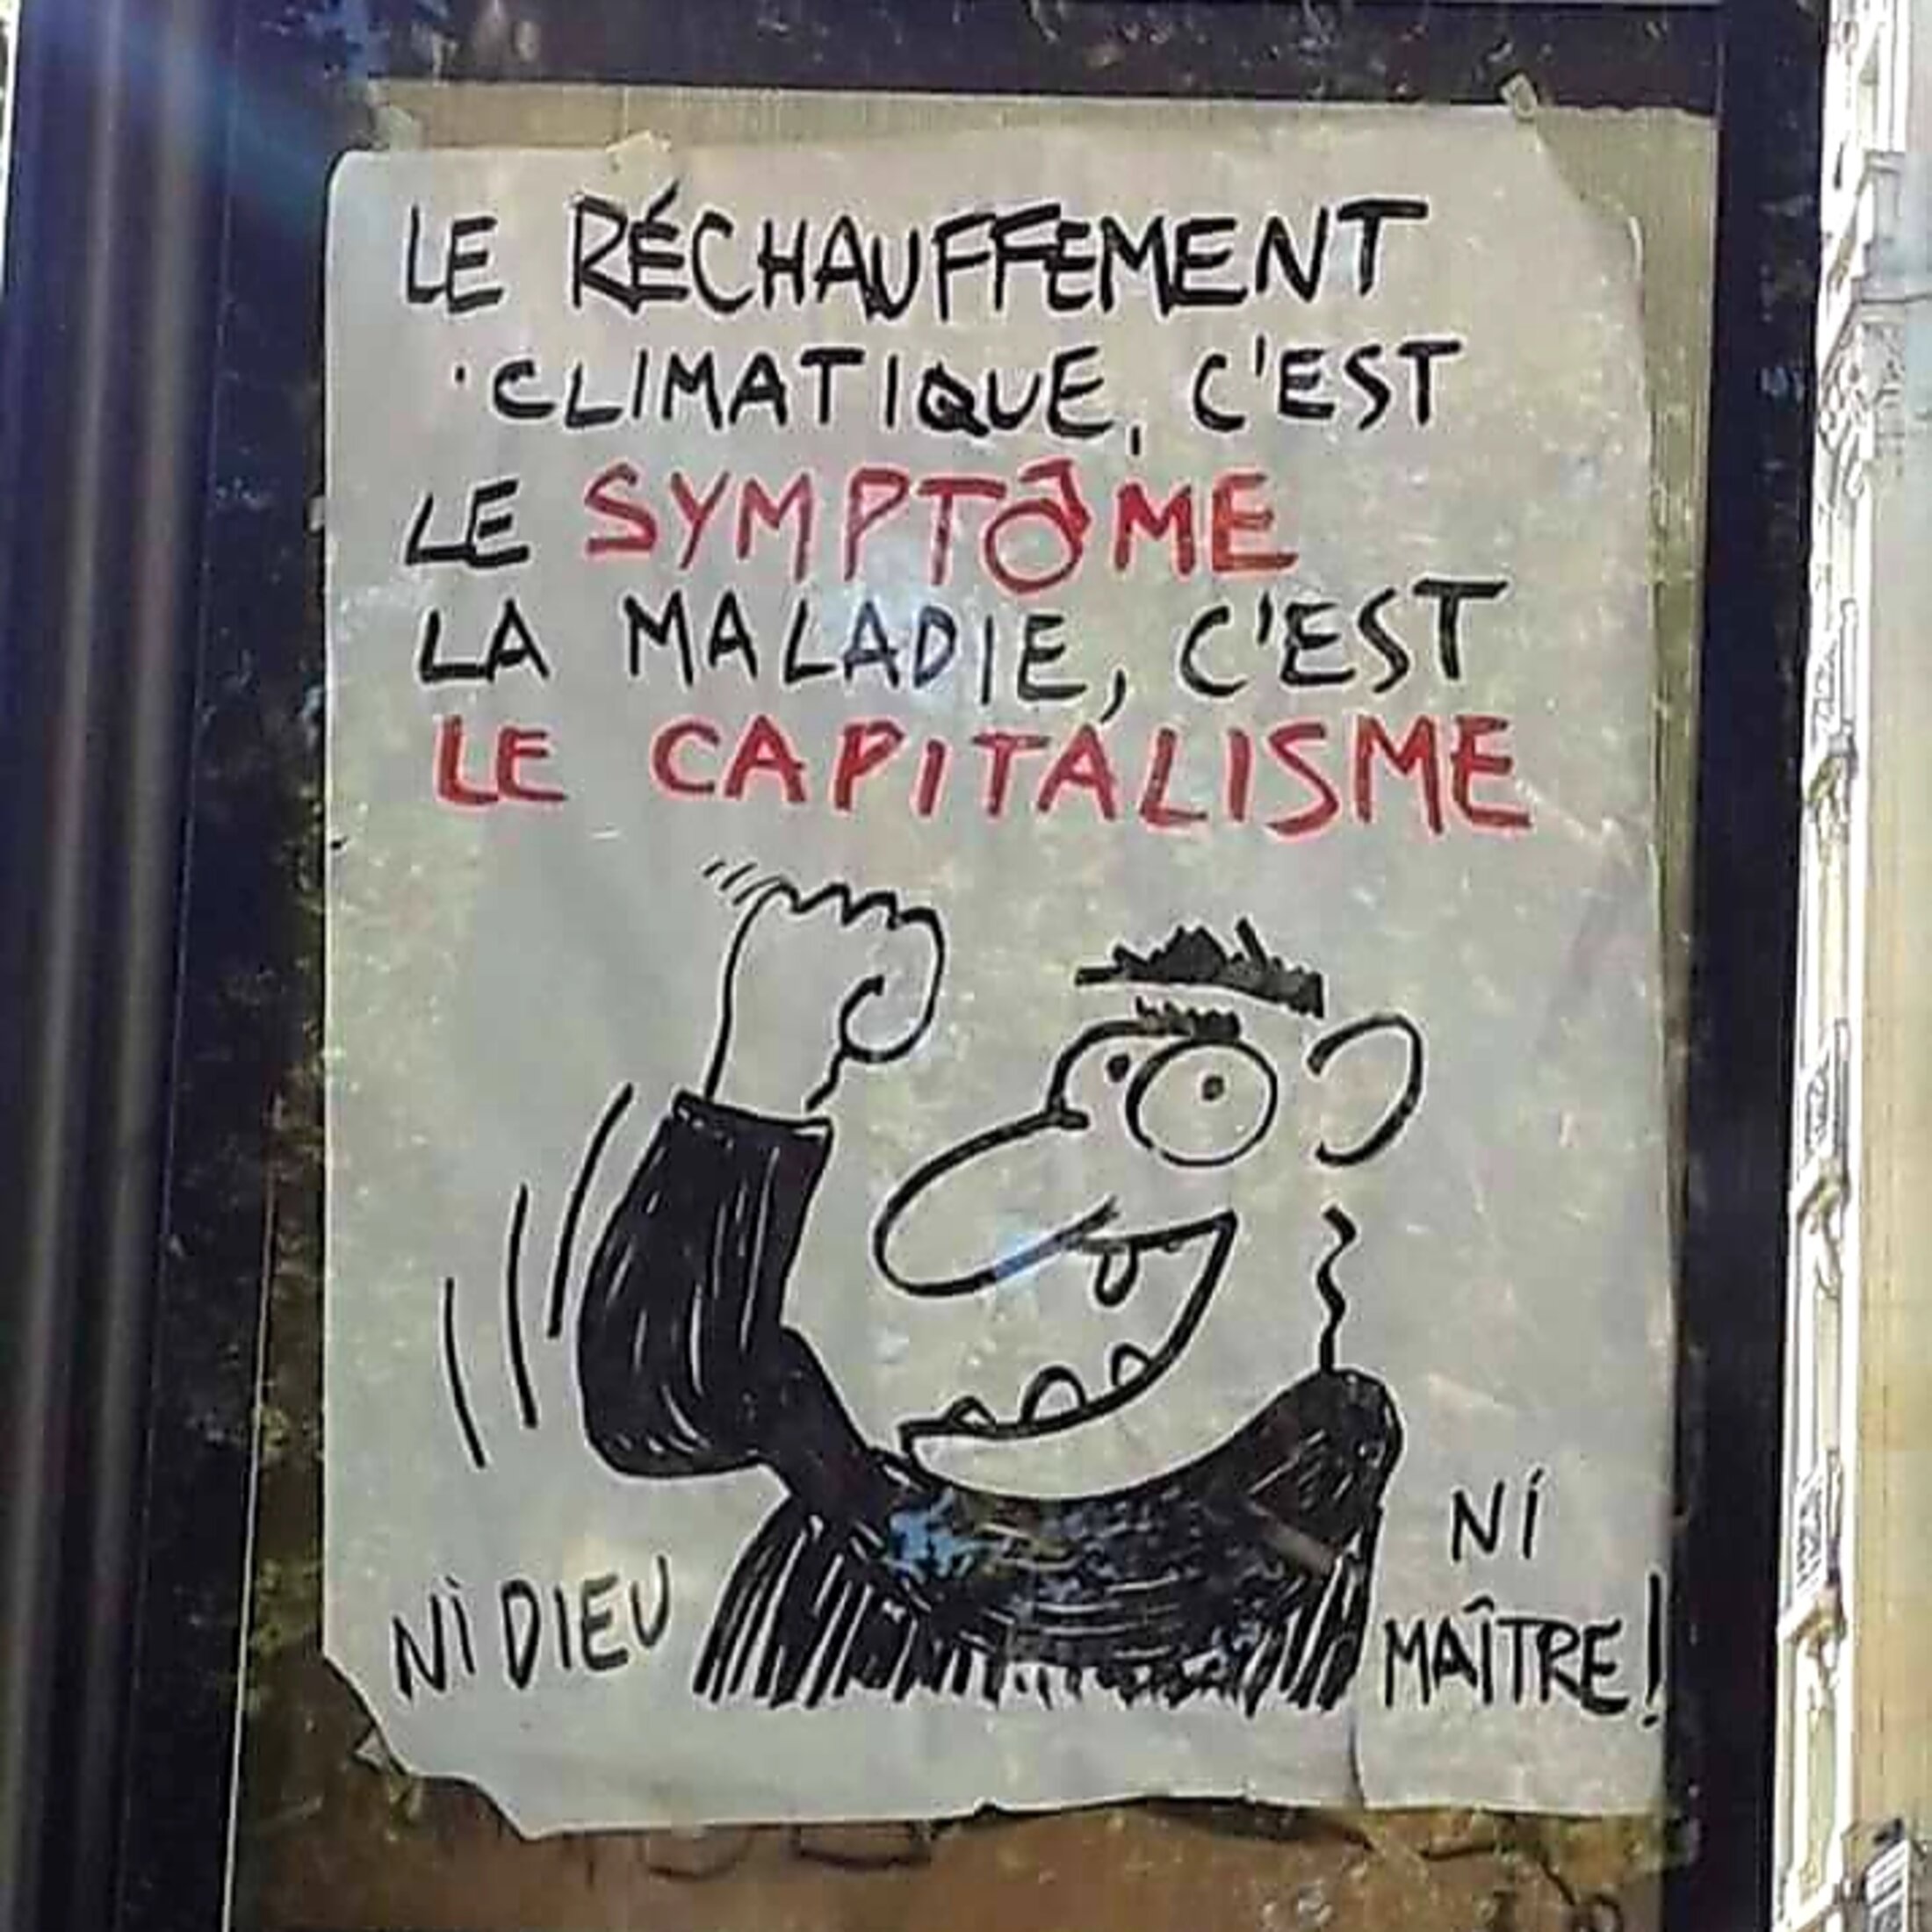 LE RÉCHAUFFEMENT
CLIMATIQUE, C'EST
LE SYMPTÔME
LA MALADIE, C'EST
LE CAPITALISME
NI DIEU
NI
MAÎTRE!